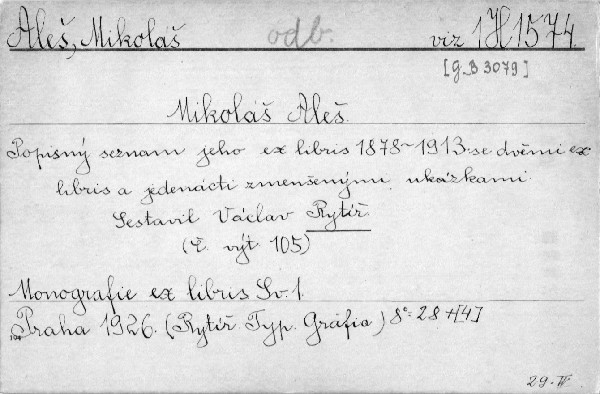 Aleš, Mikoláš odb. viz 1H1574.
[G.B 3079]
Mikoláš Aleš.
Popisný seznam jeho ex libris 1878-1913 se dvěmi ex
libris a jedenácti zmenšenými ukázkami.
Sestavil Václav Rytíř.
(Č. výt. 105)
Monografie ex libris Sv. 1.
Praha 1926. (Rytíř Typ. Grafia) 8° 28 + [4]
104
29-VI